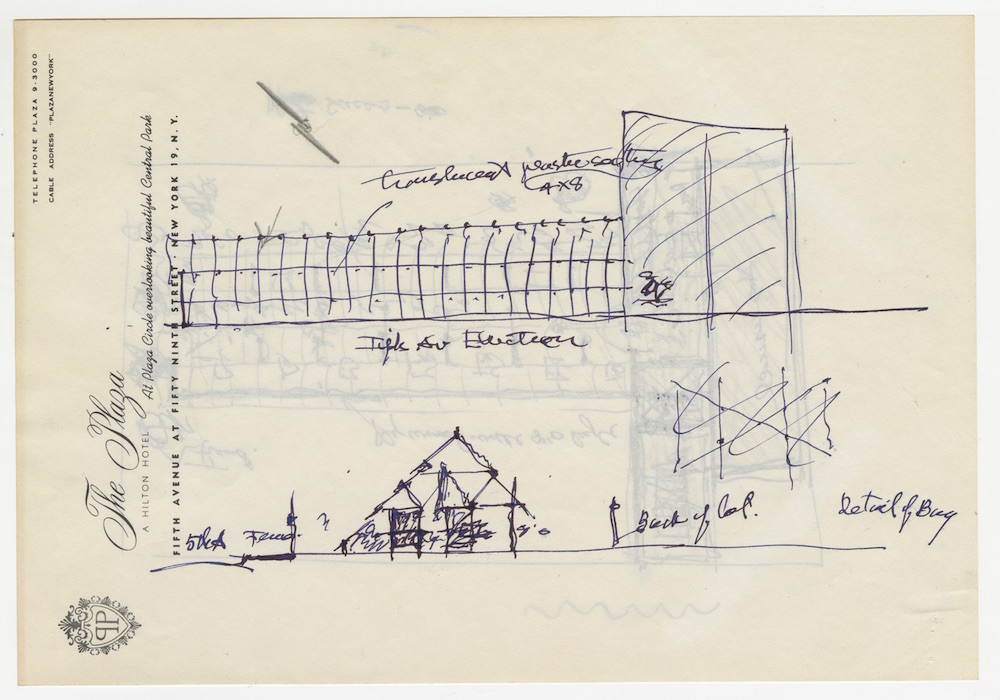 TELEPHONE PLAZA 9-3000
CABLE ADDRESS "PLAZANEWYORK"
The Plaza
A HILTON HOTEL
At Plaza Circle overlooking beautiful Central Park
FIFTH AVENUE AT FIFTY NINTH STREET · NEW YORK 19, N. Y.
PP
translucent
4x8
Fifth Av Elevation
5th A
Back of lot.
Detail of Bay